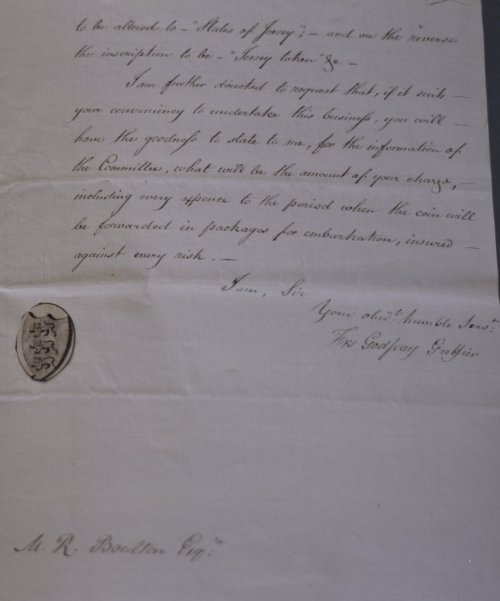 to be allowed to - "States of Jersey"; - and on the reverse
the inscription to be - "Jersey token" &c -
I am further directed to request that, if it suits -
your conveniency to undertake this business, you will -
have the goodness to state to me, for the information of
the Committee, what will be the amount of your charge, -
including every expence to the period when the coin will
be forwarded in packages for embarkation, insured -
against every risk. -
I am, Sir
Your obedt. humble Servt.
Frs Godfray Greffier
M. R. Boulton Esqre.